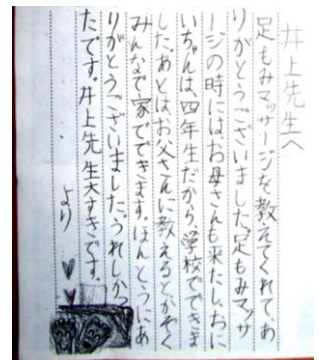 井上先生へ
足もみマッサージを教えてくれて、あ
りがとうございました。足もみマッサ
ージの時にはお母さんも来たし、おに
いちゃんは、四年生だから、学校でできま
した。あとはお父さんに教えるとかぞく
みんなで家でできます。ほんとうにあ
りがとうございました。うれしかっ
たです。井上先生大すきです。
より